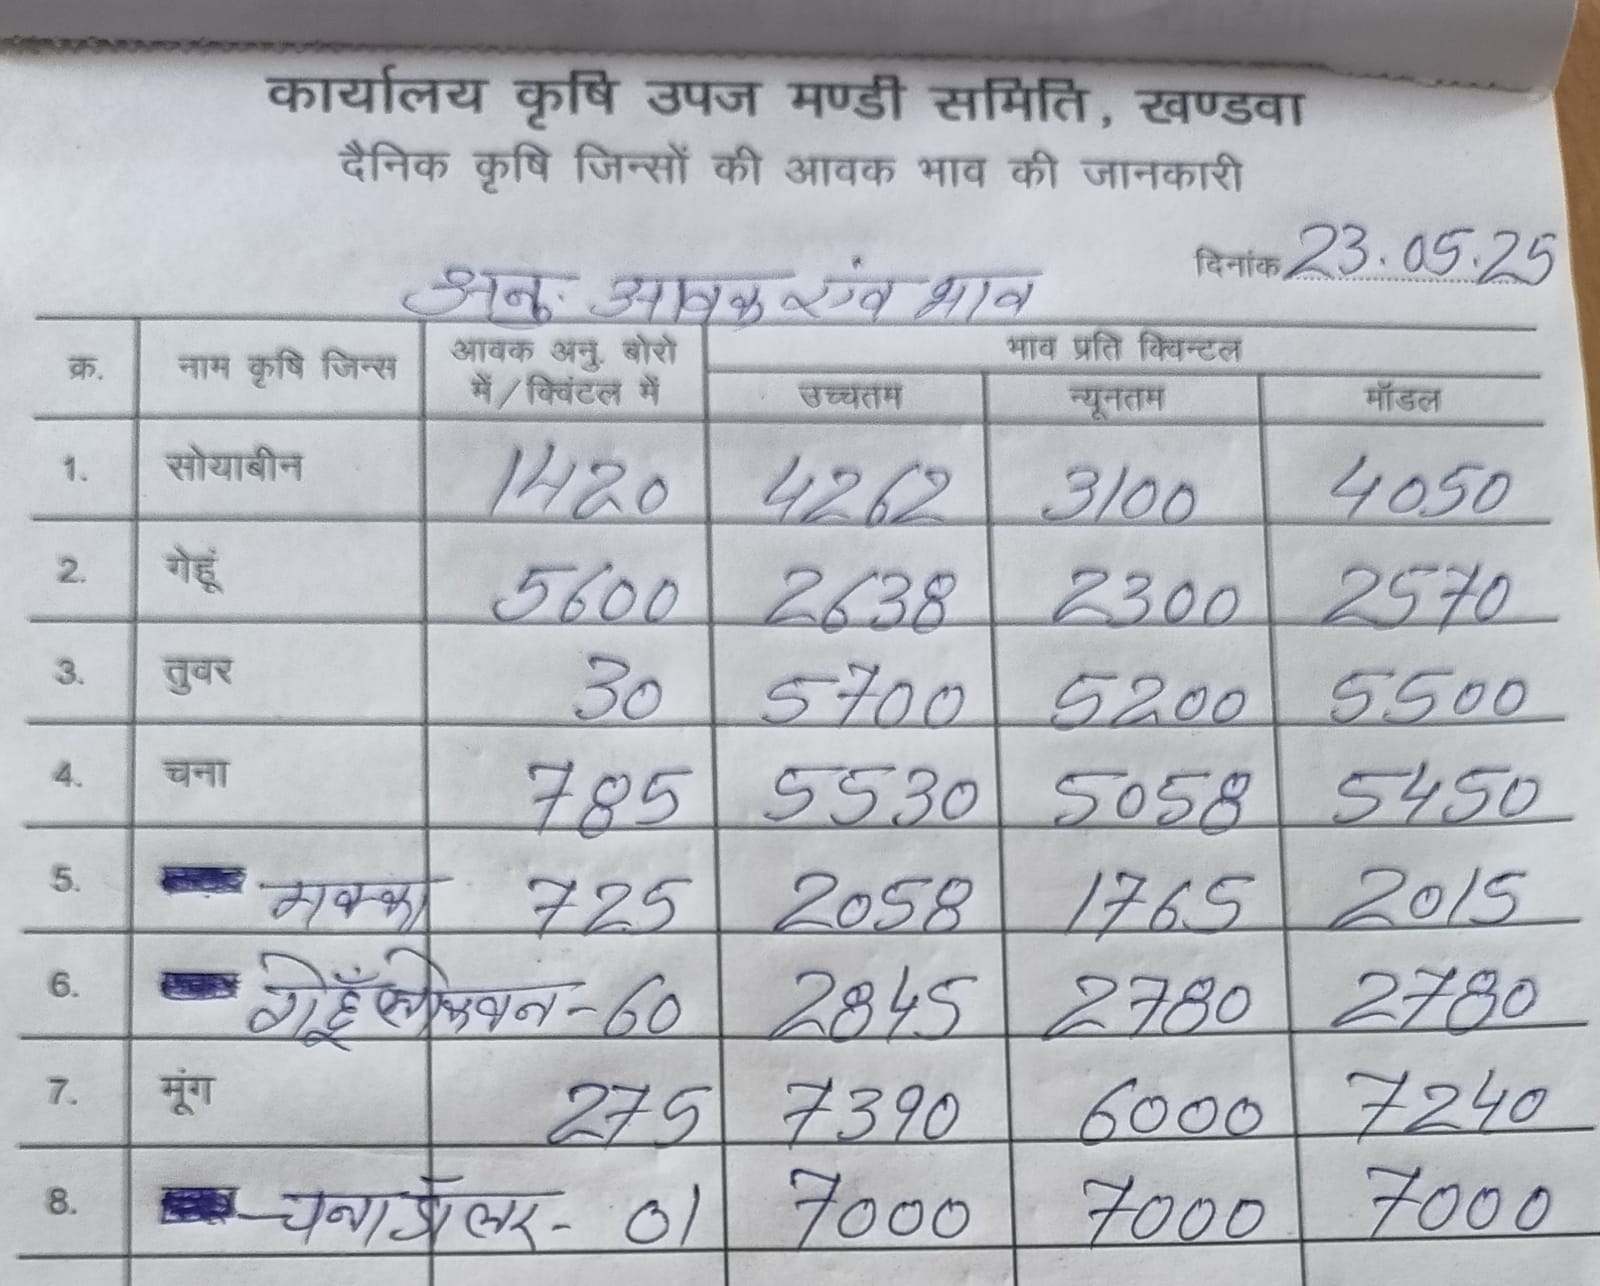 कार्यालय कृषि उपज मण्डी समिति, खण्डवा
दैनिक कृषि जिन्सों की आवक भाव की जानकारी
दिनांक 23.05.25
अनु. आवक एंव भाव
क्र. नाम कृषि जिन्स आवक अनु. बोरो में/क्विंटल में भाव प्रति क्विन्टल
उच्चतम न्यूनतम मॉडल
1. सोयाबीन 1420 4262 3100 4050
2. गेहूं 5600 2638 2300 2570
3. तुवर 30 5700 5200 5500
4. चना 785 5530 5058 5450
5. मक्का 725 2058 1765 2015
6. गेहूँ लोकवन - 60 2845 2780 2780
7. मूंग 275 7390 6000 7240
8. चना डॉलर - 01 7000 7000 7000